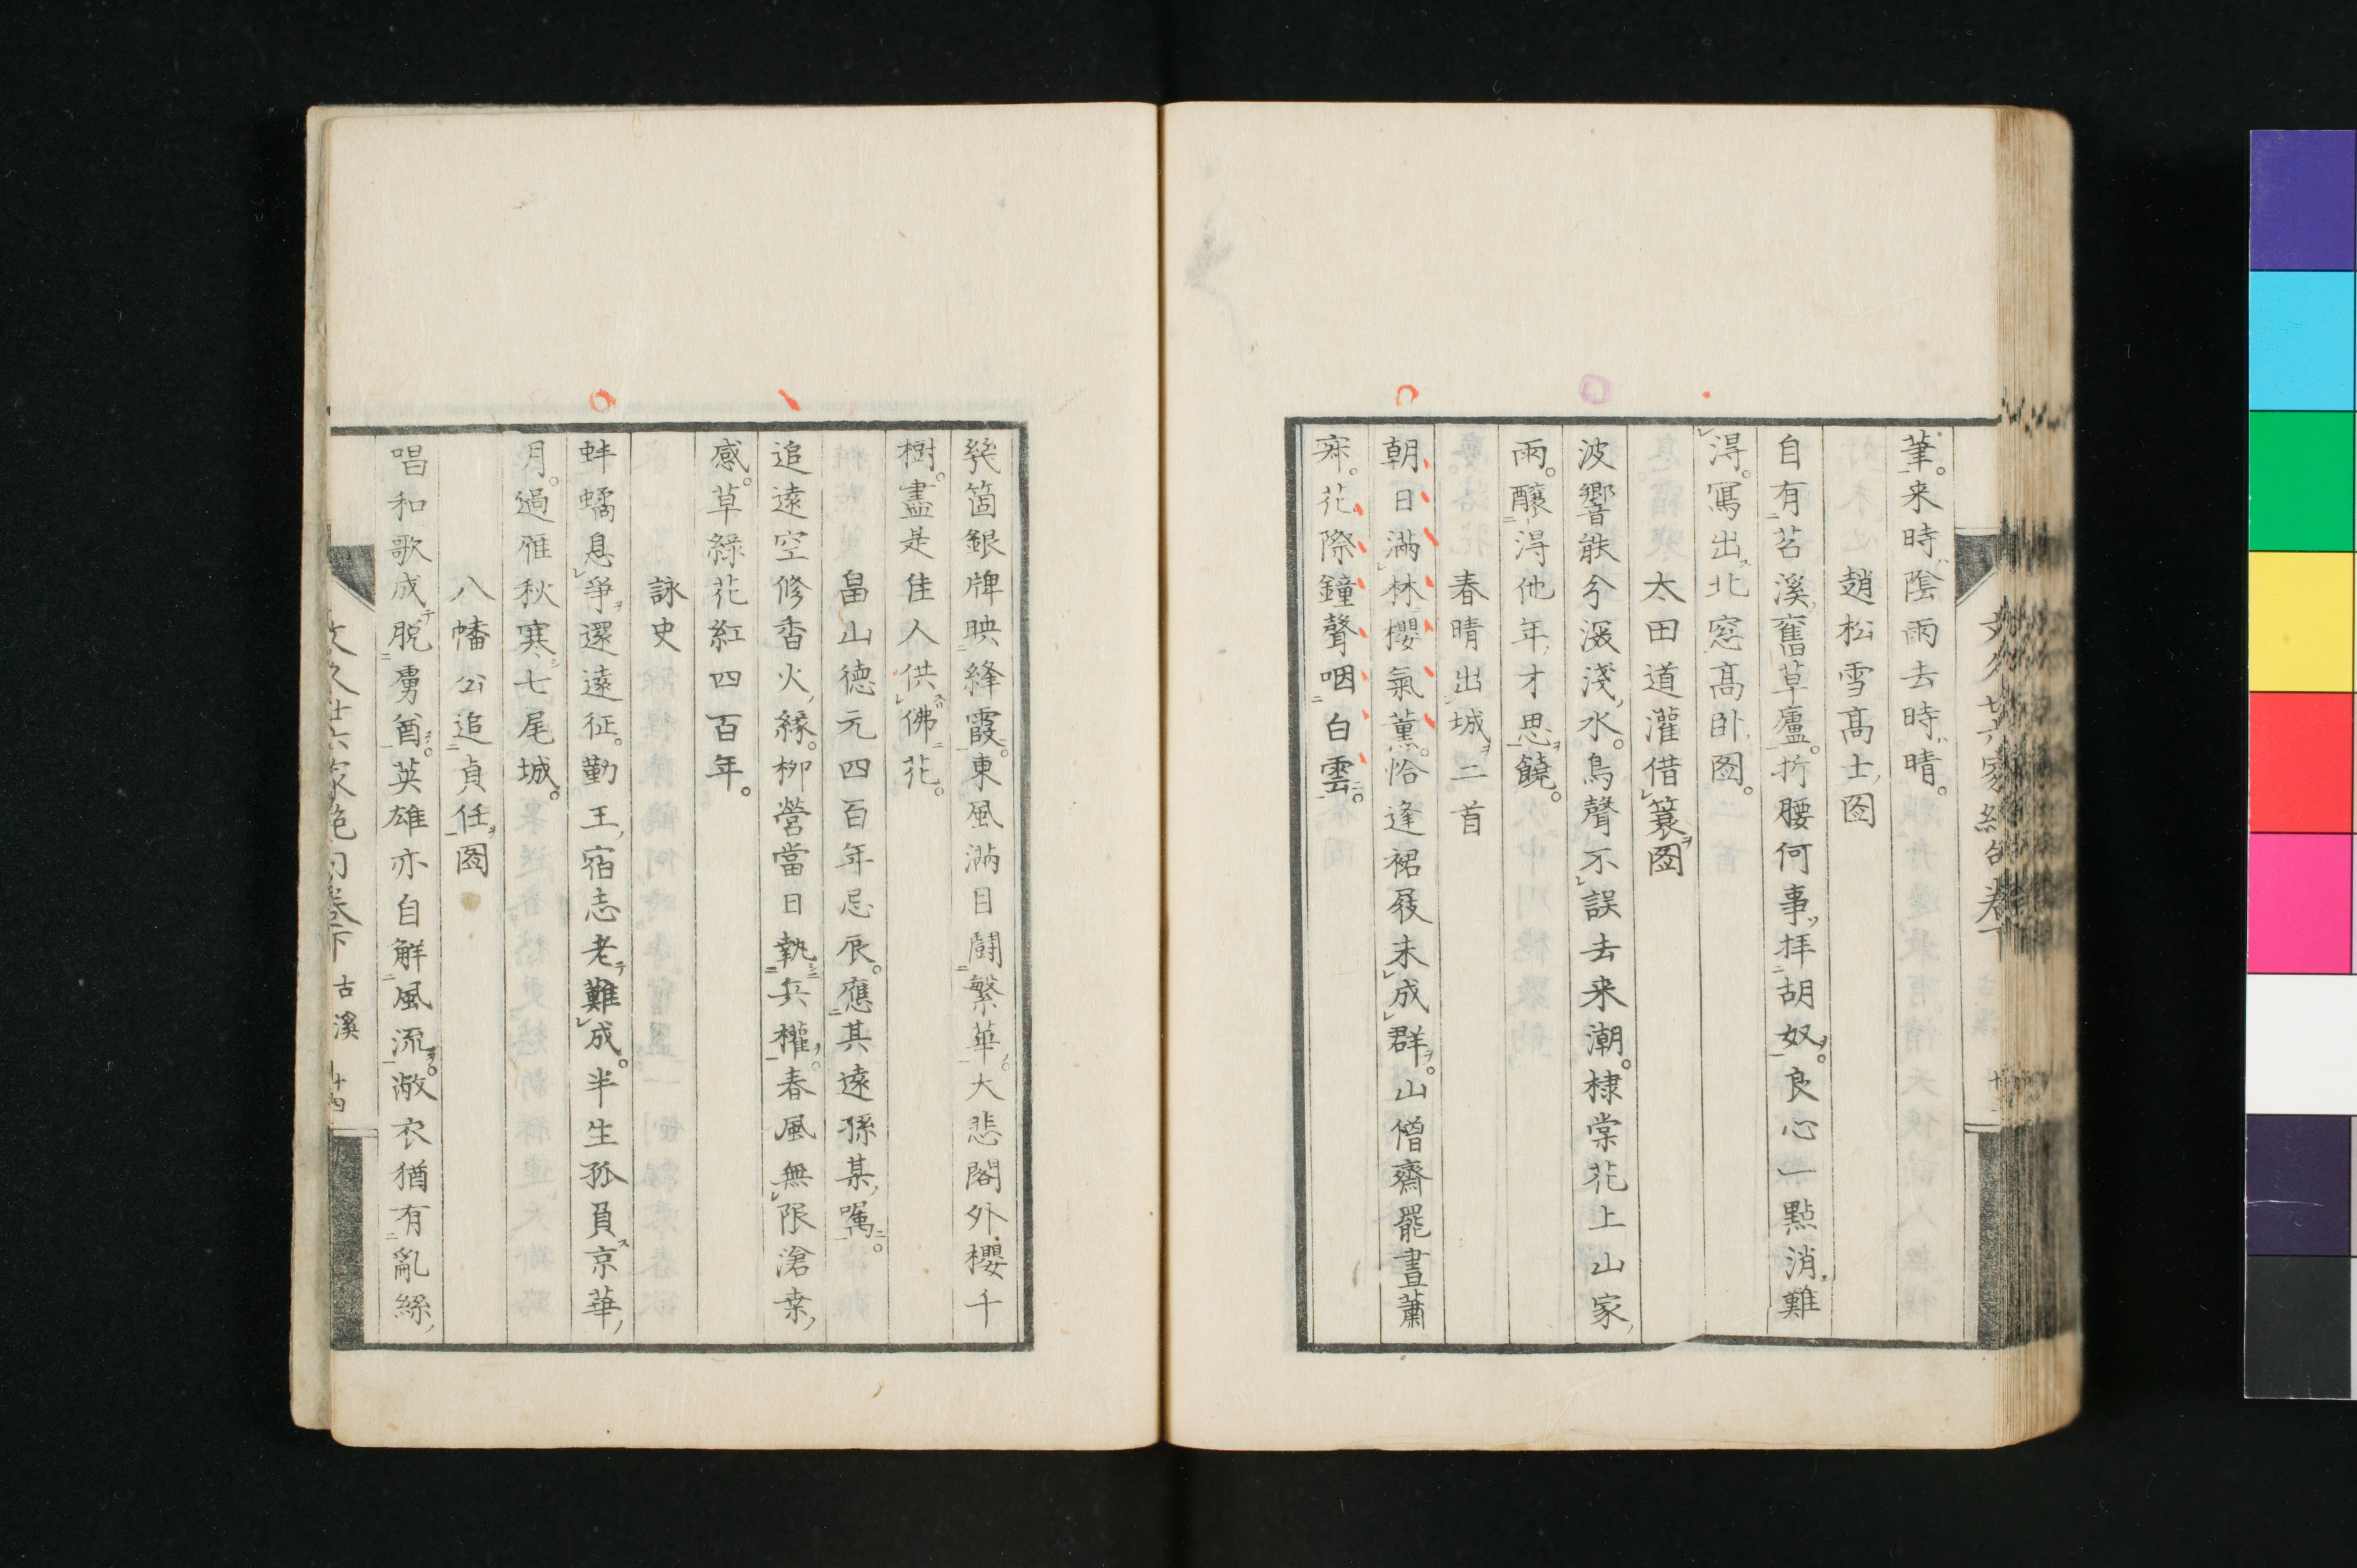 筆。来時陰雨去時晴。
趙松雪高士図
自有苕溪舊草廬。折腰何事拝胡奴。良心一點消難
得。寫出北窓高臥図。
太田道灌借簑図
波響般分深淺水。鳥聲不誤去来潮。棣棠花上山家
雨。釀得他年才思饒。
春晴出城二首
朝日滿林櫻氣薫。恰逢裙屐未成群。山僧齋罷晝蕭
寂。花際鐘聲咽白雲。
幾箇銀牌映絳霞。東風滿目鬪繁華。大悲閣外櫻千
樹。盡是佳人供佛花。
畠山德元四百年忌辰。應其遠孫某囑。
追遠空修香火緣。柳營當日執兵權。春風無限滄桒
感。草綠花紅四百年。
詠史
蚌蟠息爭還遠征。勤王宿志老難成。半生孤負京華
月。過雁秋寒七尾城。
八幡公追貞任図
唱和歌成脫虜酋。英雄亦自解風流。敝衣猶有亂絲
文久廿六家絶句卷下 古溪 十四